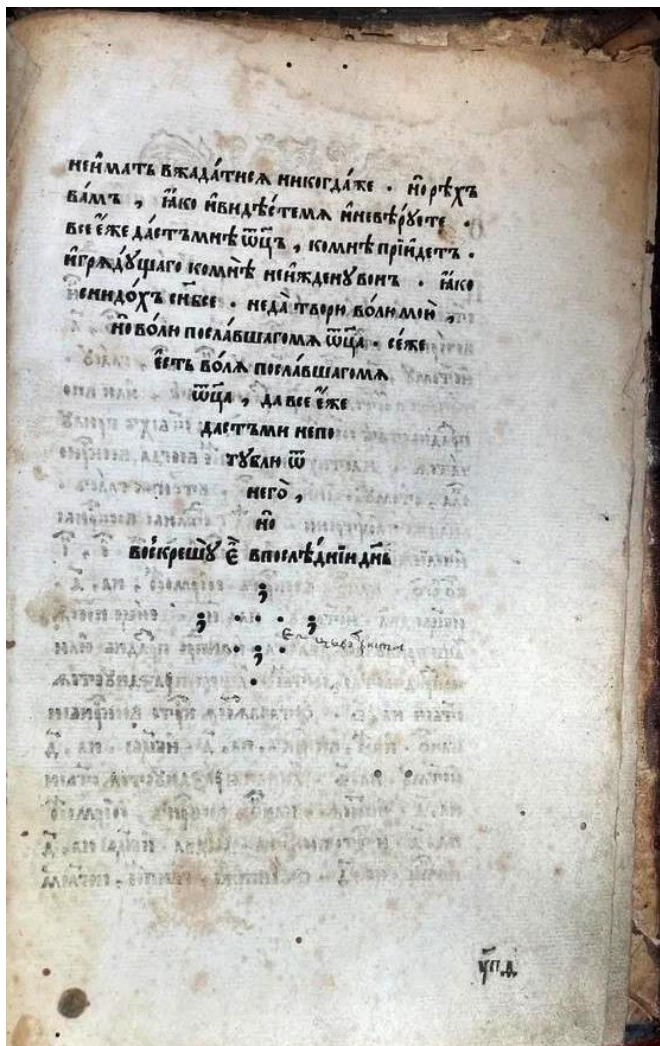 неи҆мать вжада́тисѧ никогда́же . но҆ рѣ́хъ
ва́мъ , ꙗ҆́ко и҆ви́дѣстемѧ и҆невѣ́рꙋете .
все е҆́же да́стъмнѣ ѿц҃ъ , комнѣ̀ прїи҆́детъ .
и҆грѧдꙋ́щаго комнѣ̀ неи҆жденꙋвонъ . ꙗ҆́ко
снидо́хъ сн҃бсе . неда̀ творю во́лю мою̀ ,
но҆ во́лю посла́вшагомѧ ѿц҃а . се́же
е҆́сть во́лѧ посла́вшагомѧ
ѿц҃а , да все е҆́же
да́стъми непо
гꙋблю ѿ
него̀ ,
но҆
воскрешꙋ̀ е҆̀ впослѣ́днїи дн҃ь
ꙋ҃п.д.